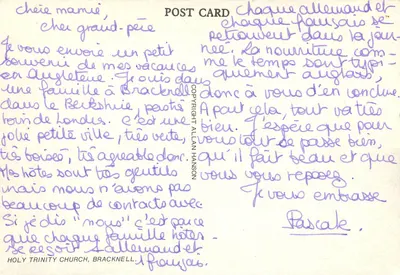 POST CARD
chère mamie,
cher grand-père
Je vous envoie un petit
souvenir de mes vacances
en Angleterre. Je suis dans
une famille à Bracknell
dans le Berkshire, pas très
loin de Londres. C'est une
jolie petite ville, très verte,
très boisée, très agréable donc.
Mes hôtes sont très gentils
mais nous n'avons pas
beaucoup de contacts avec.
Si je dis "nous" c'est parce
que chaque famille hôte
reçoit 1 allemand et
1 français.
chaque allemand et
chaque français se
retrouvent dans la jour-
née. La nourriture com-
me le temps sont typi-
quement anglais,
donc à vous d'en conclure.
A part cela, tout va très
bien. J'espère que pour
vous tout se passe bien,
qu'il fait beau et que
vous vous reposez.
Je vous embrasse
Pascale.
COPYRIGHT ALLAN HANSON
HOLY TRINITY CHURCH, BRACKNELL